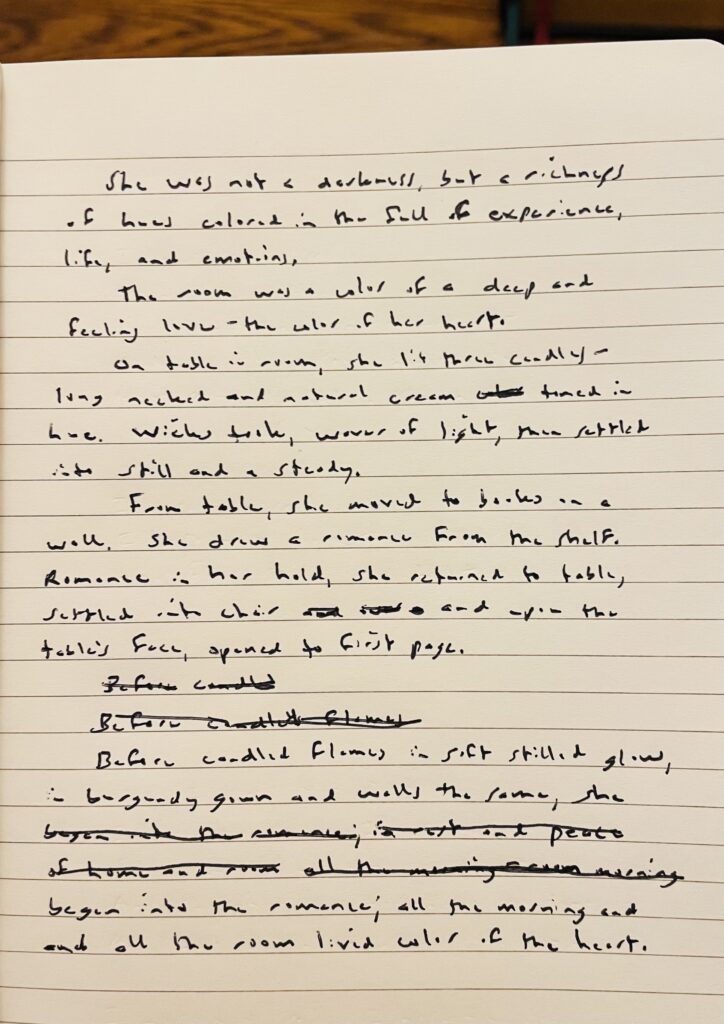 She was not a darkness, but a richness
of hues colored in the full of experience,
life, and emotions,
The room was a color of a deep and
feeling love – the color of her heart.
On table in room, she lit three candles –
long necked and natural cream toned in
hue. Wicks took, waver of light, then settled
into still and a steady.
From table, she moved to books on a
wall. She drew a romance from the shelf.
Romance in her hold, she returned to table,
settled into chair and upon the
table's face, opened to first page.
Before candled
Before candled flames
Before candled flames in soft stilled glow,
in burgundy gown and walls the same, she
began into the romance; in rest and peace
of home and room all the morning morning
began into the romance; all the morning and
and all the room lived color of the heart.